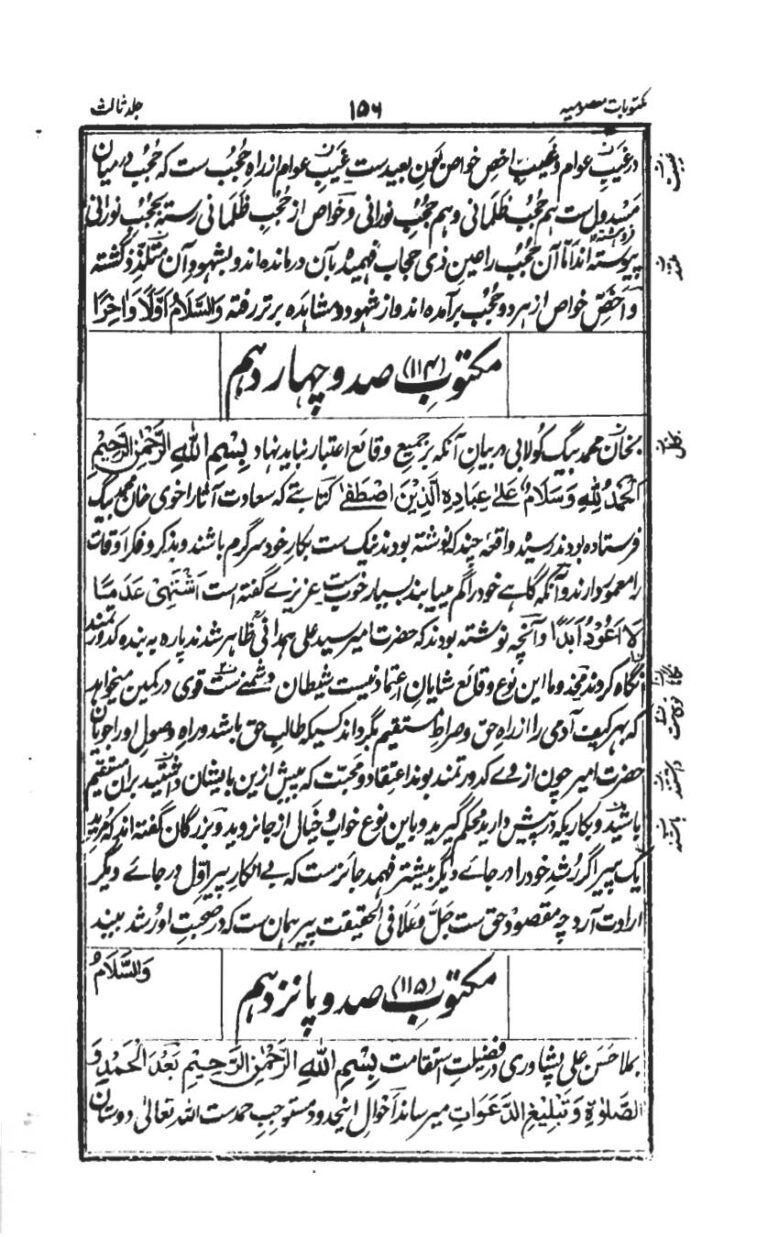 مکتوبات معصومیہ
۱۵۶
جلد ثالث
در غیبِ عوام و غیبِ اخص خواص بَونِ بعید ست غیبِ عوام از راہِ حُجُب ست کہ حُجُب درمیان
مسدول ست ہم حُجُبِ ظلمانی و ہم حُجُبِ نورانی و خواص از حُجُبِ ظلمانی رستہ بحُجُبِ نورانی
پیوستہ اند اما آن حُجُب را عینِ ذی حجاب فہمیدہ بآن درماندہ اند و بشہود آن متلذذ گشتہ
و اخصِّ خواص از ہر دو حُجُب برآمدہ اند و از شہود و مشاہدہ برتر رفتہ وَالسَّلَامُ اَوَّلًا وَاٰخِرًا
مکتوبِ (۱۱۴) صد و چہار دہم
بخان محمد بیگ کولابی در بیانِ آنکہ بر جمیع وقائع اعتبار نباید نہاد بِسْمِ اللهِ الرَّحْمٰنِ الرَّحِیْمِ
اَلْحَمْدُ لِلّٰهِ وَسَلَامٌ عَلٰی عِبَادِهِ الَّذِیْنَ اصْطَفٰی کتابتے کہ سعادت آثار اخوی خان محمد بیگ
فرستادہ بودند رسید واقعۂ چند کہ نوشتہ بودند نیک ست بکارِ خود سرگرم باشند و بذکر و فکر اوقات
را معمور دارند و آنکہ گاہے خود را گم مییابند بسیار خوب ست عزیزے گفتہ است اَشْتَهِیْ عَدَمًا
لَا اَعُوْدُ اَبَدًا و آنچہ نوشتہ بودند کہ حضرت امیر سید علی ہمدانی ظاہر شدند پارہ بہ بندہ کدورتمند
نگاہ کردند مخدوما این نوع وقائع شایانِ اعتماد نیست شیطان دشمنے ست قوی در کمین میخواہد
کہ بہر کیف آدمی را از راہِ حق و صراطِ مستقیم بگرداند کسیکہ طالبِ حق باشد و راہِ وصول او را جویان
حضرت امیر چون از وے کدورتمند بوند اعتقاد و محبت کہ پیش ازین بایشان داشتید بران مستقیم
باشید و بکاریکہ در پیش دارید محکم گیرید و باین نوع خواب و خیال از جا نروید و بزرگان گفتہ اند کہ مریدِ
یک پیر اگر رُشدِ خود را در جائے دیگر بیشتر فہمد جائز ست کہ بے انکارِ پیرِ اوّل در جائے دیگر
ارادت آرد چہ مقصود حق ست جَلَّ وَعَلَا فی الحقیقت پیر ہمان ست کہ در صحبتِ او رُشد بیند
وَالسَّلَامُ
مکتوبِ (۱۱۵) صد و پانزدہم
بملا حسن علی پشاوری در فضیلتِ استقامت بِسْمِ اللهِ الرَّحْمٰنِ الرَّحِیْمِ بَعْدَ الْحَمْدِ وَ
الصَّلٰوةِ وَتَبْلِیْغِ الدَّعَوَاتِ میرساند احوالِ اینحدود مستوجبِ حمد ست اللہ تعالیٰ دوستان